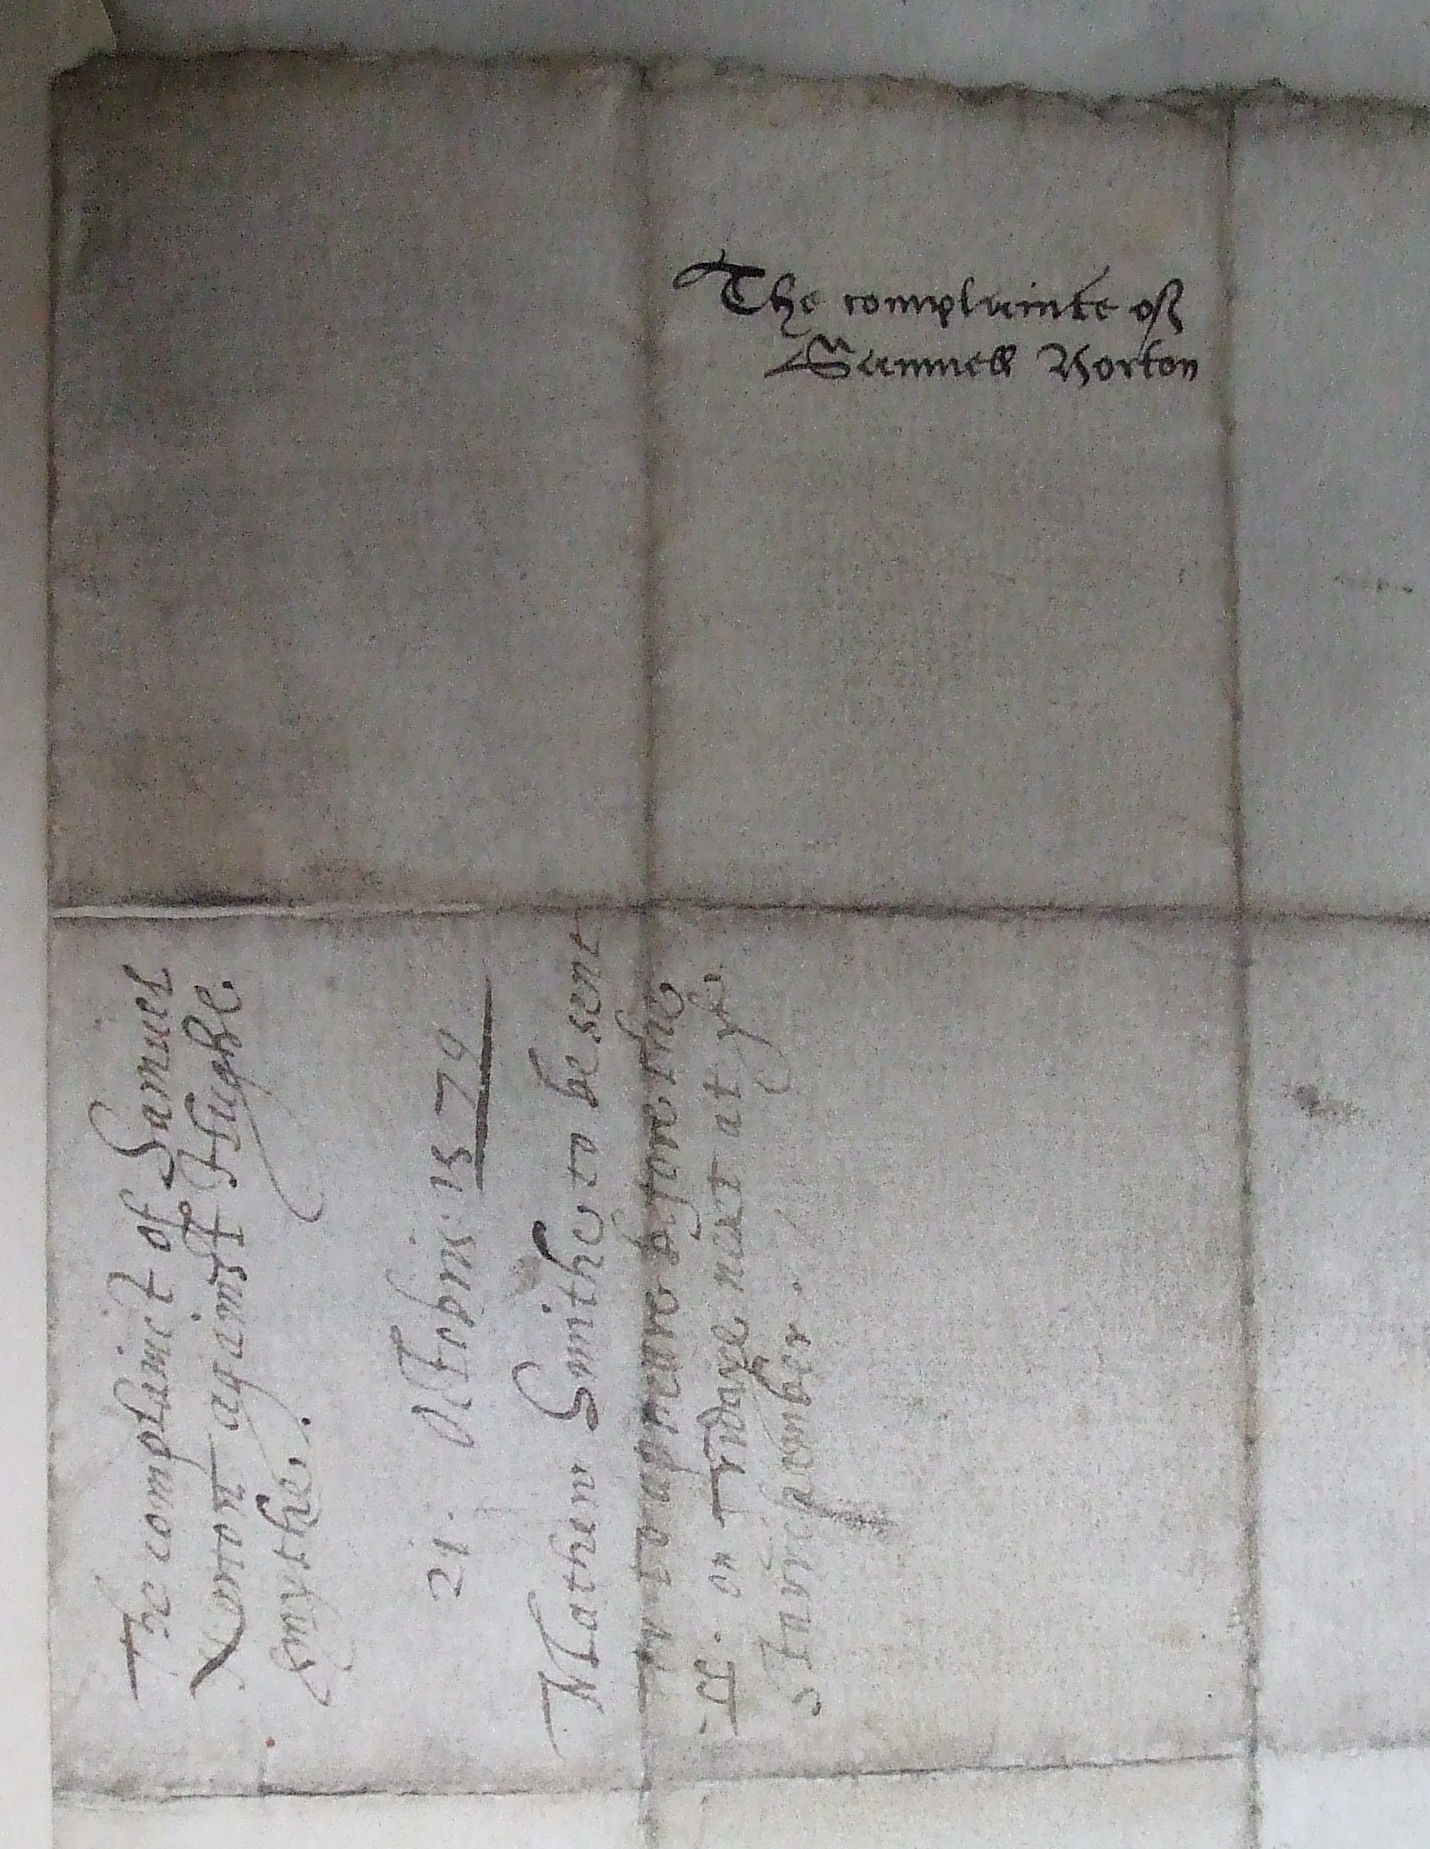 The complainte of
Samuell Norton
The complainct of Samuel
Norton against Hughe
Smythe.
21. Octobris 1579
Mathew Smithe to be sent
to appeare before the
on Fridaye next at ye
Starrechomber.